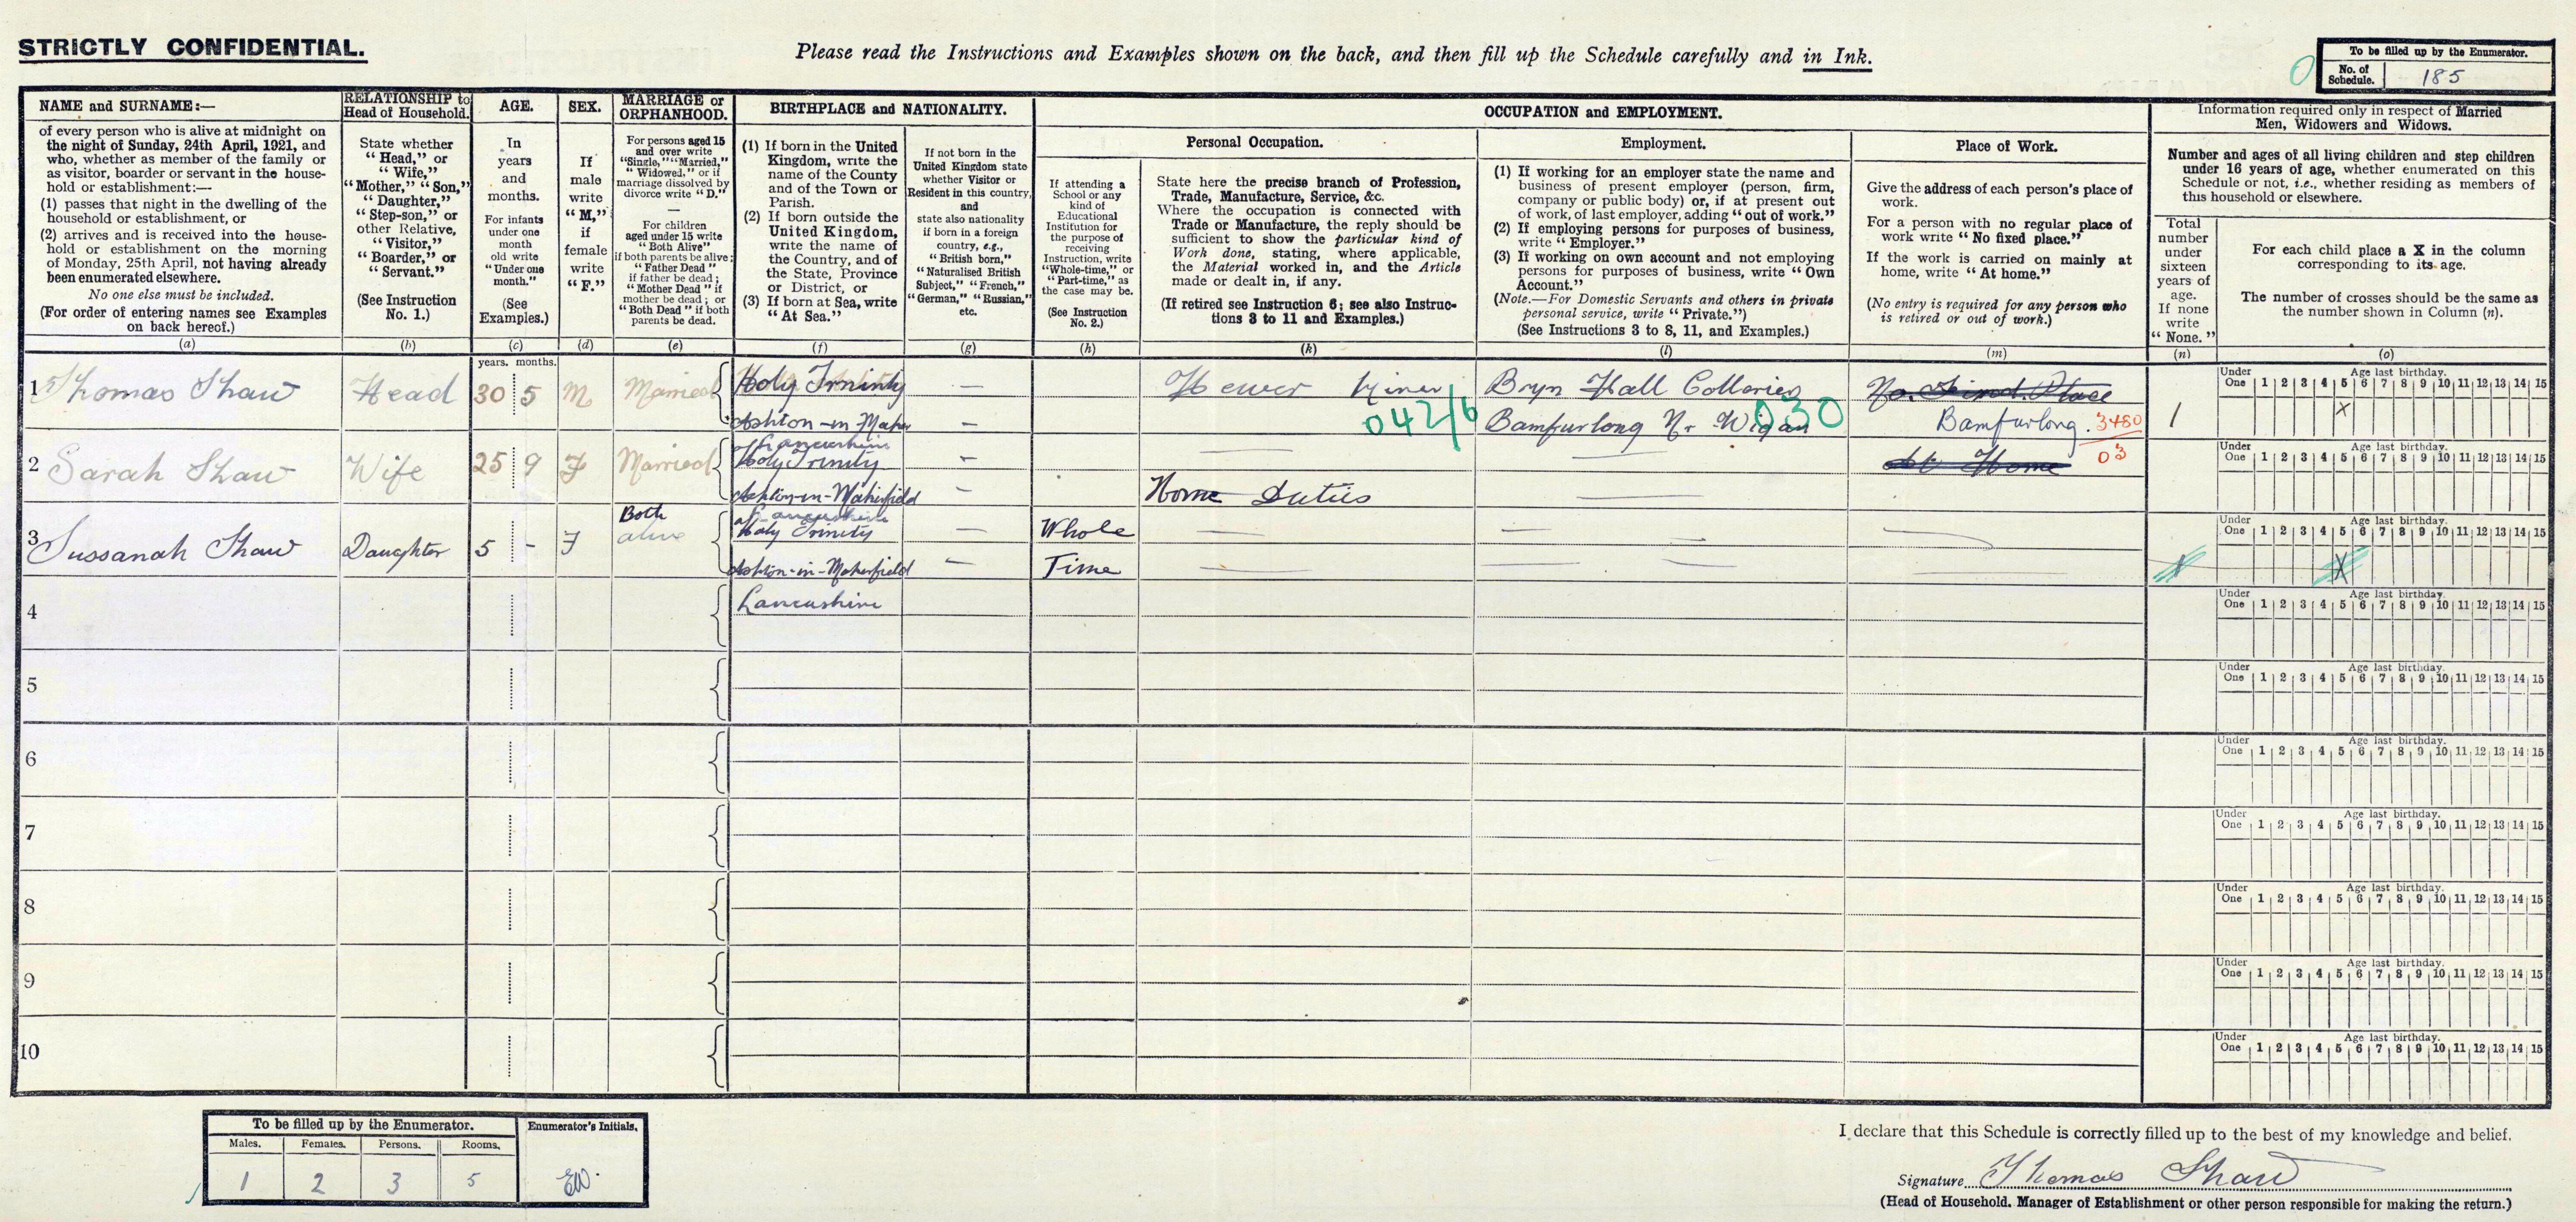 STRICTLY CONFIDENTIAL.
Please read the Instructions and Examples shown on the back, and then fill up the Schedule carefully and in Ink.
To be filled up by the Enumerator.
No. of Schedule. 185
0
NAME and SURNAME:—
of every person who is alive at midnight on
the night of Sunday, 24th April, 1921, and
who, whether as member of the family or
as visitor, boarder or servant in the house-
hold or establishment:—
(1) passes that night in the dwelling of the
household or establishment, or
(2) arrives and is received into the house-
hold or establishment on the morning
of Monday, 25th April, not having already
been enumerated elsewhere.
No one else must be included.
(For order of entering names see Examples
on back hereof.)
(a)
RELATIONSHIP to
Head of Household.
State whether
"Head," or
"Wife,"
"Mother," "Son,"
"Daughter,"
"Step-son," or
other Relative,
"Visitor,"
"Boarder," or
"Servant."
(See Instruction
No. 1.)
(b)
AGE.
In
years
and
months.
For infants
under one
month
old write
"Under one
month."
(See
Examples.)
(c)
SEX.
If
male
write
"M,"
if
female
write
"F."
(d)
MARRIAGE or
ORPHANHOOD.
For persons aged 15
and over write
"Single," "Married,"
"Widowed," or if
marriage dissolved by
divorce write "D."
—
For children
aged under 15 write
"Both Alive"
if both parents be alive;
"Father Dead"
if father be dead;
"Mother Dead" if
mother be dead; or
"Both Dead" if both
parents be dead.
(e)
BIRTHPLACE and NATIONALITY.
(1) If born in the United
Kingdom, write the
name of the County
and of the Town or
Parish.
(2) If born outside the
United Kingdom,
write the name of
the Country, and of
the State, Province
or District, or
(3) If born at Sea, write
"At Sea."
(f)
If not born in the
United Kingdom state
whether Visitor or
Resident in this country,
and
state also nationality
if born in a foreign
country, e.g.,
"British born,"
"Naturalised British
Subject," "French,"
"German," "Russian,"
etc.
(g)
OCCUPATION and EMPLOYMENT.
Personal Occupation.
If attending a
School or any
kind of
Educational
Institution for
the purpose of
receiving
Instruction, write
"Whole-time," or
"Part-time," as
the case may be.
(See Instruction
No. 2.)
(h)
State here the precise branch of Profession,
Trade, Manufacture, Service, &c.
Where the occupation is connected with
Trade or Manufacture, the reply should be
sufficient to show the particular kind of
Work done, stating, where applicable,
the Material worked in, and the Article
made or dealt in, if any.
(If retired see Instruction 6; see also Instruc-
tions 3 to 11 and Examples.)
(k)
Employment.
(1) If working for an employer state the name and
business of present employer (person, firm,
company or public body) or, if at present out
of work, of last employer, adding "out of work."
(2) If employing persons for purposes of business,
write "Employer."
(3) If working on own account and not employing
persons for purposes of business, write "Own
Account."
(Note.—For Domestic Servants and others in private
personal service, write "Private.")
(See Instructions 3 to 8, 11, and Examples.)
(l)
Place of Work.
Give the address of each person's place of
work.
For a person with no regular place of
work write "No fixed place."
If the work is carried on mainly at
home, write "At home."
(No entry is required for any person who
is retired or out of work.)
(m)
Information required only in respect of Married
Men, Widowers and Widows.
Number and ages of all living children and step children
under 16 years of age, whether enumerated on this
Schedule or not, i.e., whether residing as members of
this household or elsewhere.
Total
number
under
sixteen
years of
age.
If none
write
"None."
(n)
For each child place a X in the column
corresponding to its age.
The number of crosses should be the same as
the number shown in Column (n).
(o)
years. months.
1 Thomas Shaw Head 30 5 M Married Holy Trninty — Hewer Miner Bryn Hall Colleries No Fixed Place
Ashton-in-Maker — 042/6 Bamfurlong Nr Wigan 030 Bamfurlong. 3480 03 1
Under One 1 2 3 4 5 6 7 8 9 10 11 12 13 14 15 Age last birthday.
X
Lancashire
2 Sarah Shaw Wife 25 9 F Married Holy Trinity — At Home
Ashton-in-Makerfield — Home Duties
Under One 1 2 3 4 5 6 7 8 9 10 11 12 13 14 15 Age last birthday.
Lancashire
3 Sussanah Shaw Daughter 5 - F Both alive Holy Trinity — Whole
Ashton-in-Makerfield — Time
Under One 1 2 3 4 5 6 7 8 9 10 11 12 13 14 15 Age last birthday.
X X
4 Lancashire
Under One 1 2 3 4 5 6 7 8 9 10 11 12 13 14 15 Age last birthday.
5
Under One 1 2 3 4 5 6 7 8 9 10 11 12 13 14 15 Age last birthday.
6
Under One 1 2 3 4 5 6 7 8 9 10 11 12 13 14 15 Age last birthday.
7
Under One 1 2 3 4 5 6 7 8 9 10 11 12 13 14 15 Age last birthday.
8
Under One 1 2 3 4 5 6 7 8 9 10 11 12 13 14 15 Age last birthday.
9
Under One 1 2 3 4 5 6 7 8 9 10 11 12 13 14 15 Age last birthday.
10
Under One 1 2 3 4 5 6 7 8 9 10 11 12 13 14 15 Age last birthday.
To be filled up by the Enumerator.
Enumerator's Initials.
Males. Females. Persons. Rooms.
1 2 3 5 EW.
I declare that this Schedule is correctly filled up to the best of my knowledge and belief.
Signature Thomas Shaw
(Head of Household. Manager of Establishment or other person responsible for making the return.)